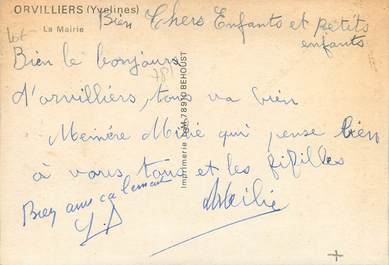 ORVILLIERS (Yvelines)
La Mairie
Bien Chers Enfants et petits
enfants
Bien le bonjours
d'orvilliers, tous va bien
Mémère Mimie qui pense bien
à vous tous et les fifilles
Bien amicalement
Imprimerie 78910 BEHOUST